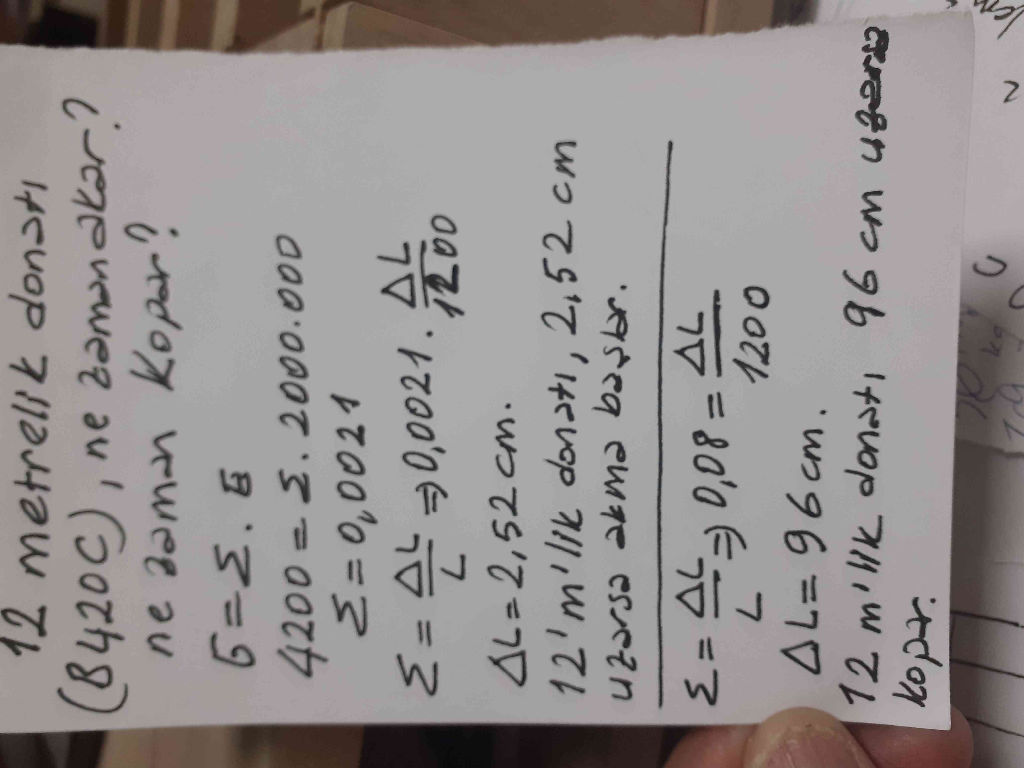 12 metrelik donatı
(B420C), ne zaman akar?
ne zaman kopar?
σ = Σ. E
4200 = Σ. 2000.000
Σ = 0,0021
Σ = ΔL/L ⇒ 0,0021. ΔL/1200
ΔL = 2,52 cm.
12'm'lik donatı, 2,52 cm
uzarsa akma başlar.
Σ = ΔL/L ⇒ 0,08 = ΔL/1200
ΔL = 96 cm.
12 m'lik donatı 96 cm uzarsa
kopar.